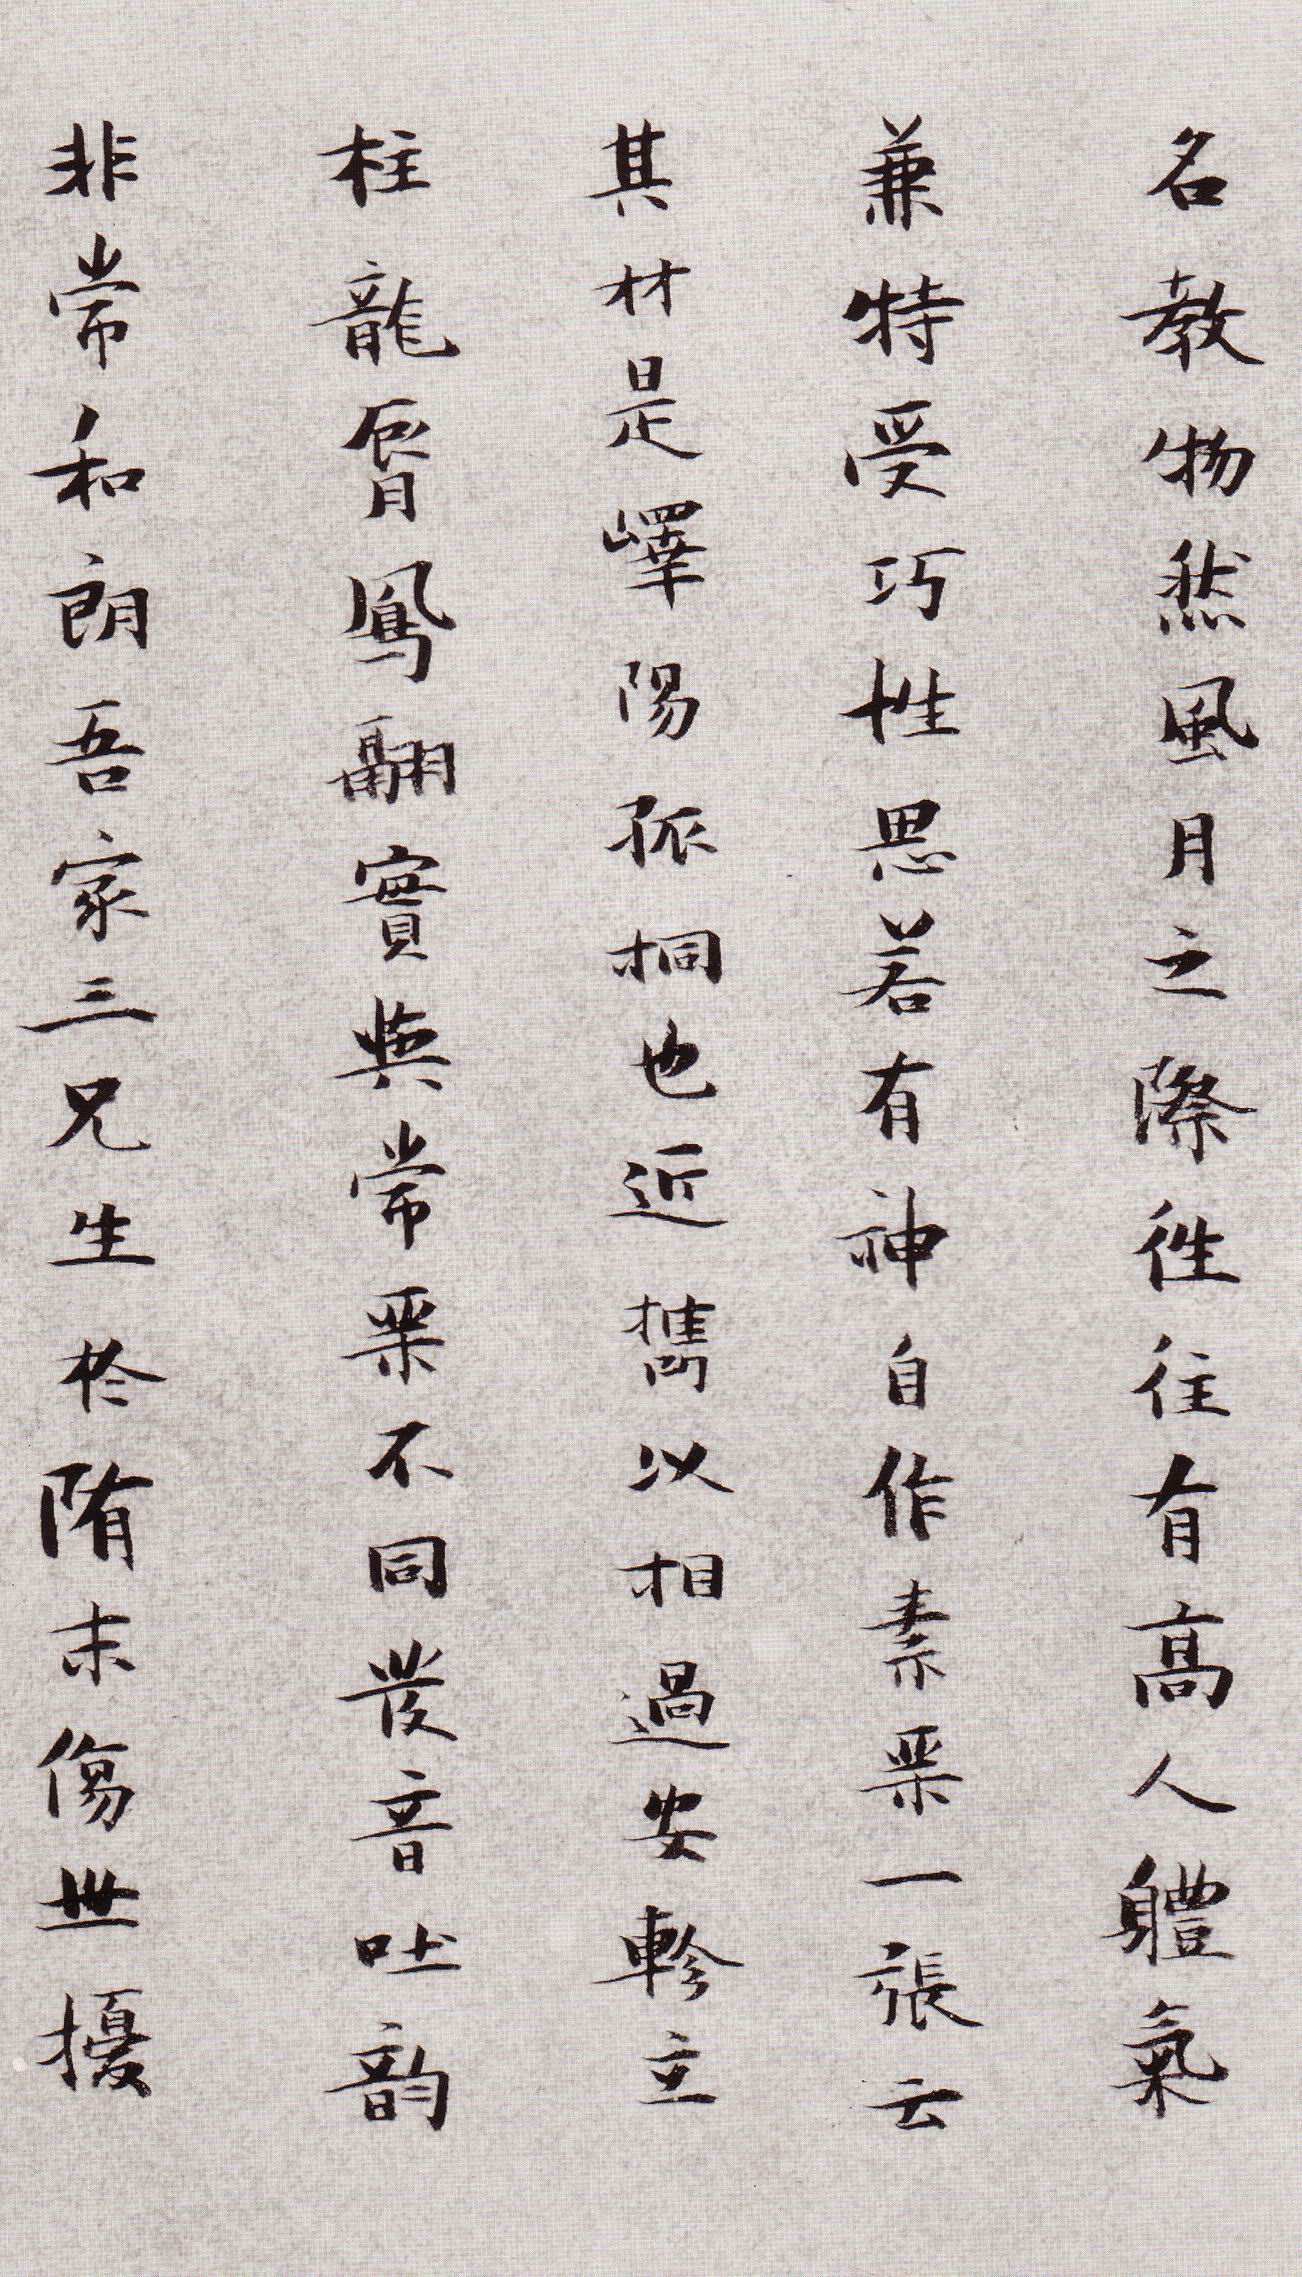 名教物然風月之際徃往有髙人體氣
兼特受巧性思若有神自作素琹一張云
其材是嶧陽孤桐也近攜以相過安軫立
柱龍脣鳳翮實與常琹不同發音吐韵
非常和朗吾家三兄生扵隋末傷世擾